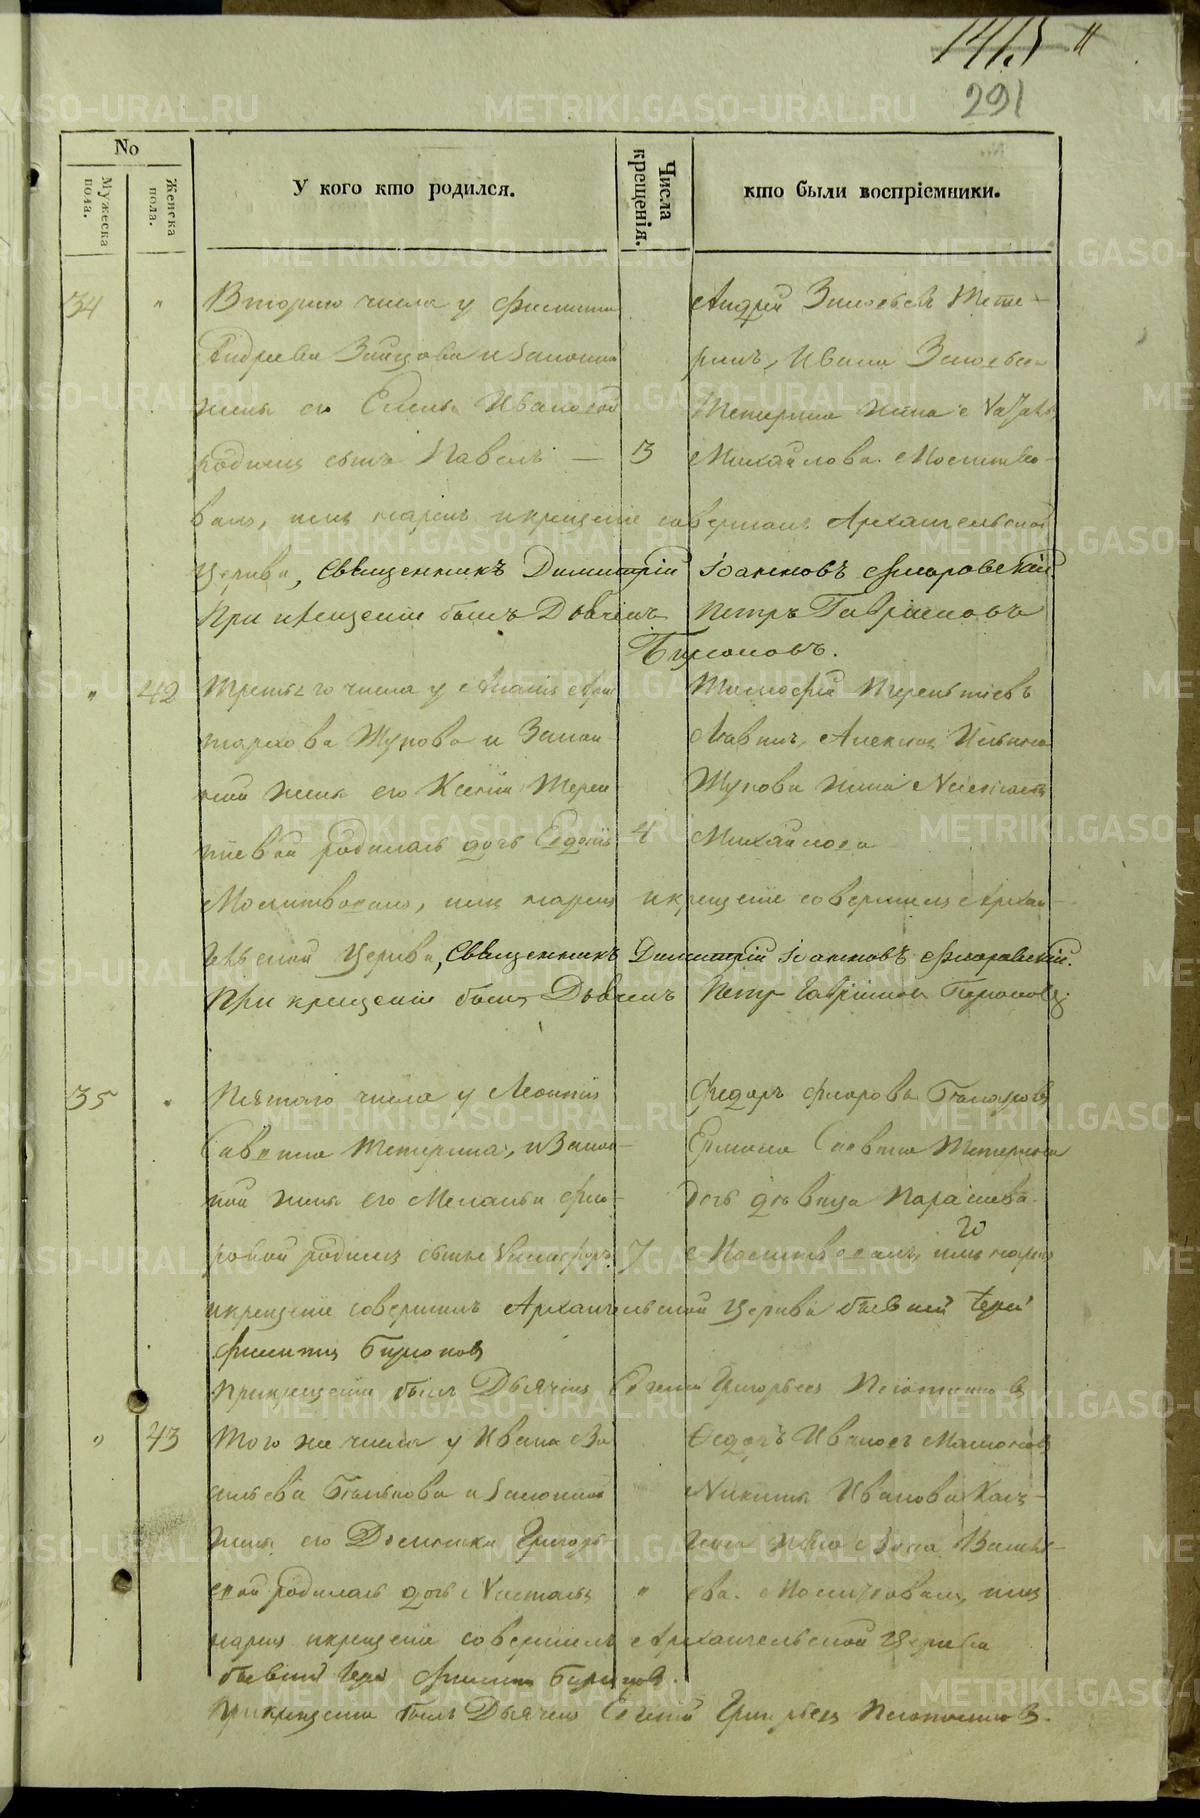 1415 11
291
No
Мужеска пола.
Женска пола.
У кого кто родился.
Числа крещенія.
кто были воспріемники.
34 " Втораго числа у Филиппа
Андреева Зайцова и законной
жены его Елены Ивановой
родился сынъ Павелъ — 3
Андрей Зиновьевъ Тете-
ринъ, Ивана Зиновьева
Тетерина жена
Михайлова. Молитво-
валъ, имя нарекъ и крещеніе совершилъ Архангельской
Церкви, Священникъ Димитрій Іоанновъ Флоровскій.
При крещеніи былъ Дьячекъ Петръ Гавріиловъ
Бирюковъ.
" 42 Третьяго числа у
Жукова и Закон-
ной жены его Ксеніи Терен-
тіевой родилась дочь Евдокія 4
Тимофей Терентіевъ
Алексея Ильина
Жукова жена
Михайлова
Молитвовалъ, имя нарекъ и крещеніе совершилъ Архан-
гельской Церкви, Священникъ Димитрій Іоанновъ Флоровскій.
При крещеніи былъ Дьячекъ Петръ Гавріиловъ Бирюковъ.
35 " Пятаго числа у Леонтія
Савина Тетерина, и Закон-
ной жены его Меланьи Фло-
ровой родился сынъ Никифоръ 7
Федоръ Флоровъ
Ермила Савина Тетерина
дочь девица Параскева.
Молитвовалъ, имя нарекъ
и крещеніе совершилъ Архангельской Церкви бывшій Іерей
Филиппъ Бирюковъ
При крещеніи былъ Дьячекъ Евгеній Григорьевъ
" 43 Того же числа у Ивана Ва
сильева и законной
жены его Домники Григорь-
евой родилась дочь Наталья "
Федоръ Ивановъ
Никиты Иванова
жена Анна Василь-
ева. Молитвовалъ, имя
нарекъ и крещеніе совершилъ Архангельской Церкви
бывшій Іерей Филиппъ Бирюковъ.
При крещеніи былъ Дьячекъ Евгеній Григорьевъ
METRIKI.GASO-URAL.RU